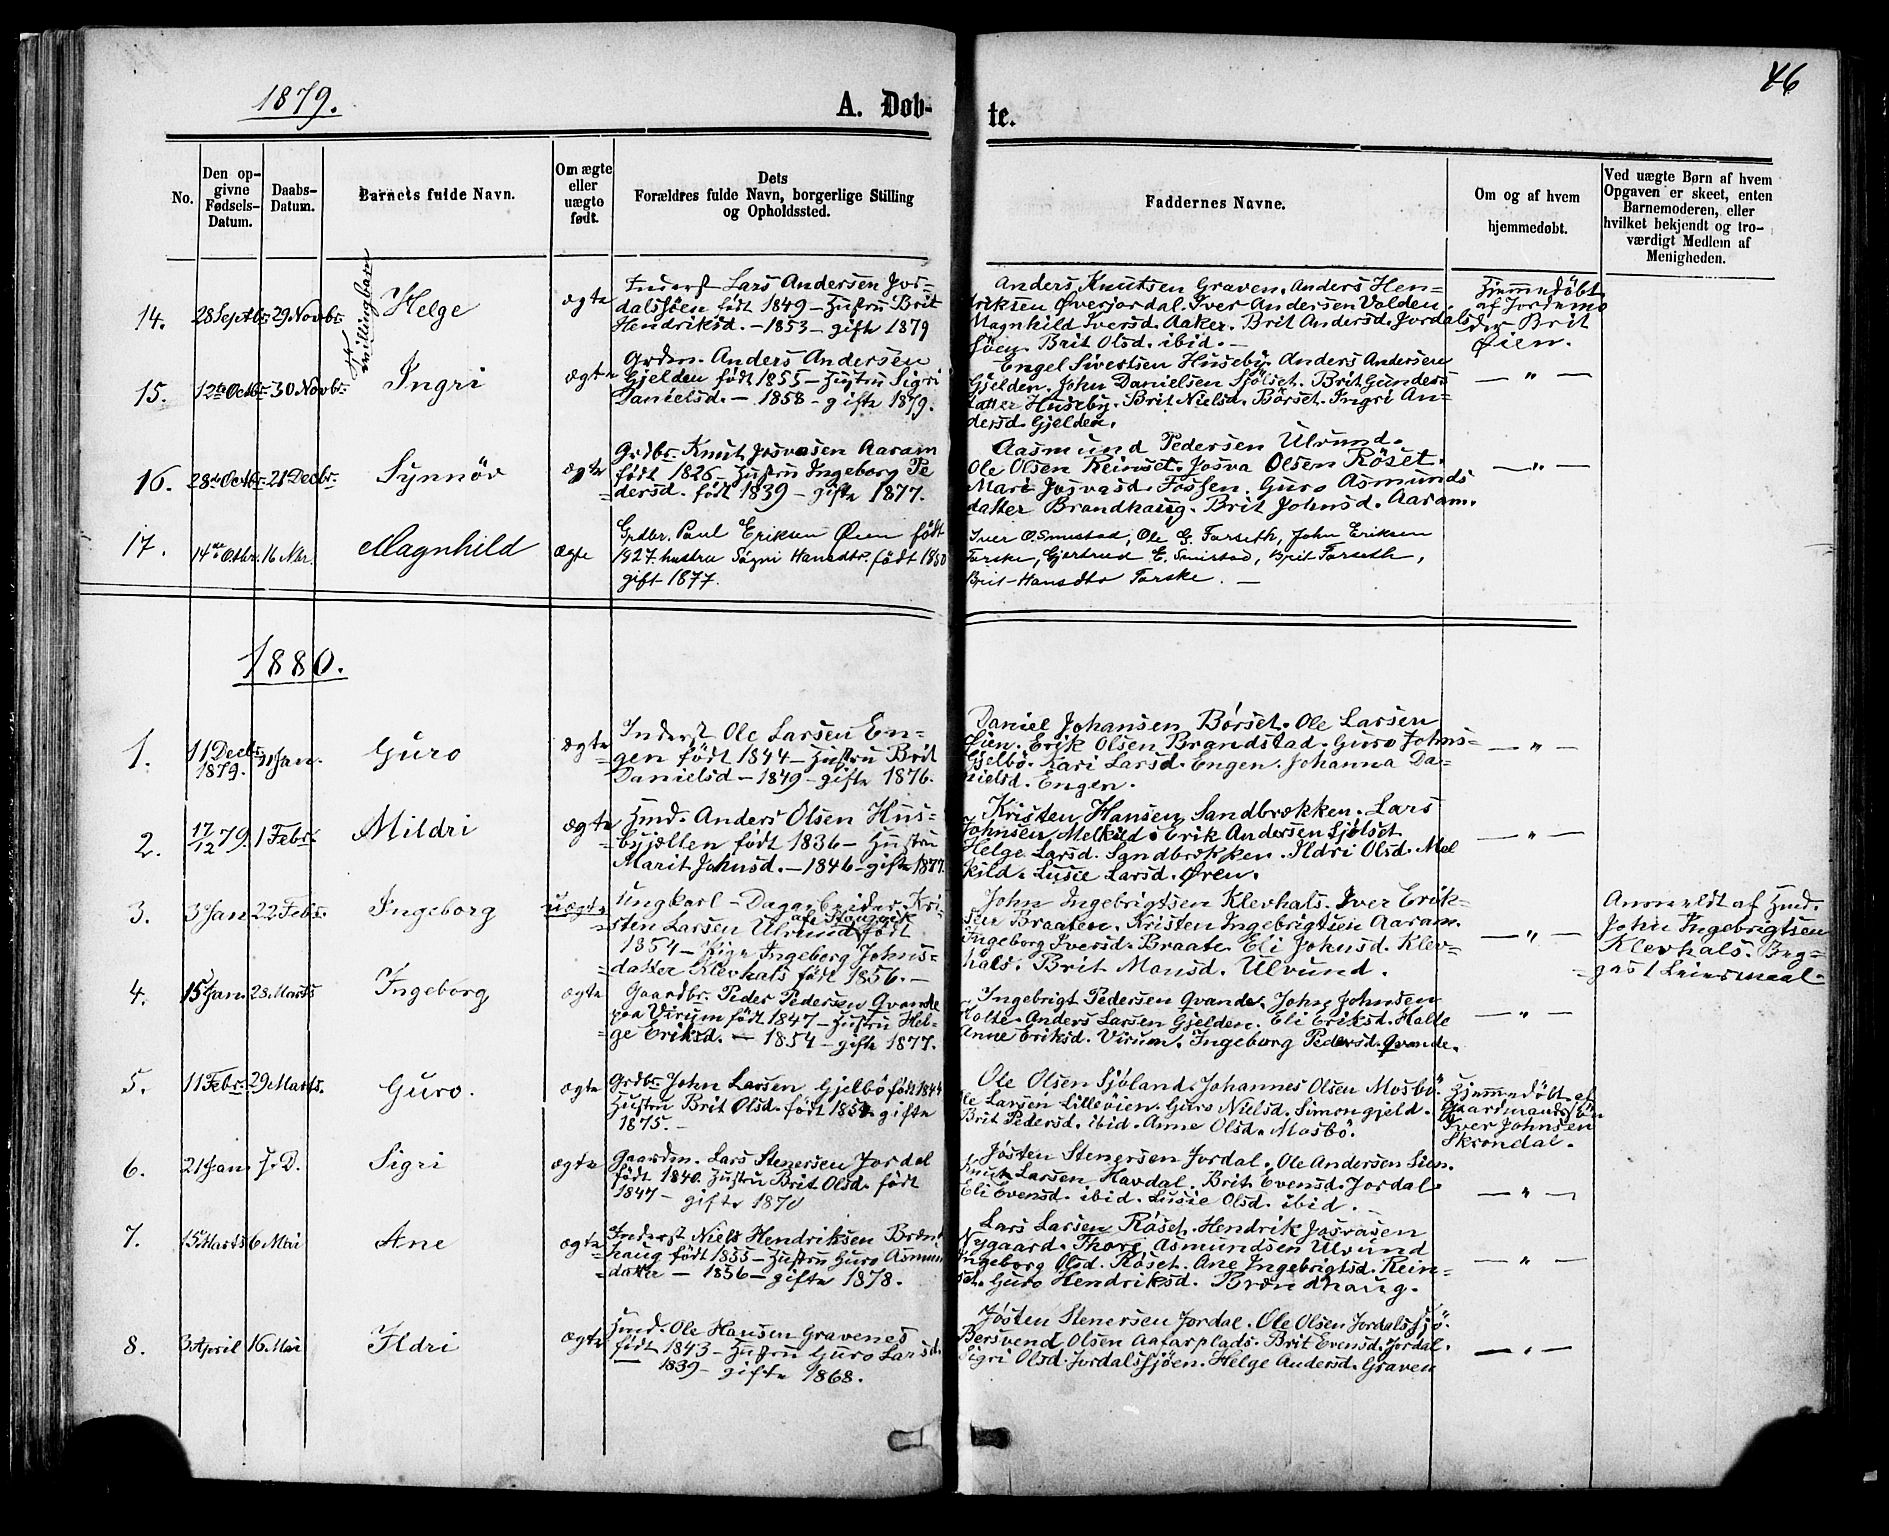 1879.
A. Døb-
te.
46
No.
Den op-
givne
Fødsels-
Datum.
Daabs-
Datum.
Barnets fulde Navn.
Om ægte
eller
uægte
født.
Dets
Forældres fulde Navn, borgerlige Stilling
og Opholdssted.
Faddernes Navne.
Om og af hvem
hjemmedøbt.
Ved uægte Børn af hvem
Opgaven er skeet, enten
Barnemoderen, eller
hvilket bekjendt og tro-
værdigt Medlem af
Menigheden.
14. 28 Septbr. 29 Novbr. Tvillingbarn Helge ægte
Inderst Lars Andersen Jor-
dalssjöen født 1849 - Hustru Brit
Hendriksd. - 1853 - gifte 1879
Anders Knutsen Graven. Anders Hen-
driksen Øverjordal. Iver Andersen Volden.
Magnhild Iversd. Aaker. Brit Andersd. Jordals
sjöen. Brit Olsd. ibid. -
Hjemmedøbt
af Jordemo
der Brit
Øien.
15. 12te Octbr. 30 Novbr. Ingri ægte
Grdm. Anders Andersen
Gjelden født 1855 - Hustru Sigri
Danielsd. - 1858 - gifte 1879.
Engel Sivertsen Huseby. Anders Andersen
Gjelden. John Danielsen Sjölset. Brit Gunders
datter Huseby. Brit Nielsd. Börset. Ingri An-
dersd. Gjelden.
- " -
16. 28de Octbr. 21 Decbr. Synnöv ægte
Grdbr. Knut Josvasen Aaram
født 1826 - Hustru Ingeborg Pe
dersd. født 1839 - gifte 1877.
Aasmund Pedersen Ulvund.
Ole Olsen Reinset. Josva Olsen Röset.
Mari Josvasd. Fossen. Guro Asmunds
datter Brandhaug. Brit Johnsd. Aaram.
- " -
17. 14de Octbr. 16 Nbr. Magnhild ægte
Grdbr. Paul Eriksen Øien født
1827. hustru Søgni Hansdtr. født 1850
gift 1877.
Iver O. Smistad, Ole G. Farseth, John Eriksen
Farske, Gjertrud E. Smistad, Brit Farseth,
Brit Hansdtr Farske. -
1880.
1. 11 Decbr. 1879. Jan. Guro ægte
Inderst Ole Larsen En-
gen født 1844 - Hustru Brit
Danielsd - 1849 - gifte 1876.
Daniel Johansen Börset. Ole Larsen
Øien. Erik Olsen Brandstad. Guro Johns-
Gjelbö. Kari Larsd. Engen. Johanna Da-
nielsd. Engen.
- " -
2. 17/12 79. 1 Febr. Mildri ægte
Hmd. Anders Olsen Hus-
byjælten født 1836 - Hustru
Marit Johnsd. - 1846 - gifte 1877.
Kristen Hansen Sandbrækken. Lars
Johnsen Melkild. Erik Andersen Sjölset
Helge Larsd. Sandbrækken. Ildri Olsd. Mel
kild. Lusie Larsd. Øren.
- " -
3. 3 Jan 22 Febr. Ingeborg uægte
Ungkarl - Dagarbeider Kri-
sten Larsen Ulvund født
1854 - Pige Ingeborg Johns-
datter Klevhals født 1856. -
John Ingebrigtsen Klevhals. Iver Erik-
sen Braaten. Kristen Ingebrigtsen Aaram.
Ingeborg Iversd. Braate. Eli Johnsd. Klev-
hals. Brit Monsd. Ulvund.
- " -
Anmeldt af Hmd.
John Ingebrigtsen
Klevhals. Beg-
ges 1 Leiersmaal.
4. 15 Jan. 28 Marts Ingeborg ægte
Gaardbr. Peder Pedersen Qvande
paa Virum født 1847 - Hustru Hel-
ge Eriksd. - 1854 - gifte 1877.
Ingebrigt Pedersen Qvande. John Johnsen
Holte. Anders Larsen Gjelden. Eli Eriksd. Halle
Anne Eriksd. Virum. Ingeborg Pedersd. Qvande.
- " -
5. 11 Febr. 29 Marts. Guro. ægte
Grdbr. John Larsen Gjelbö født 1844
Hustru Brit Olsd. født 1851. gifte
1875. -
Ole Olsen Sjöland. Johannes Olsen Mosbö.
Ole Larsen Lilleöien. Guro Nielsd. Simongjeld.
Brit Pedersd. ibid. Anne Olsd. Mosbö.
Hjemmedöbt af
Gaardmandssön
Iver Johnsen
Skrondal.
6. 21 Jan. s. D. Sigri ægte
Gaardm. Lars Stenersen Jordal
født 1840. Hustru Brit Olsd. født
1847 - gifte 1870
Jøsten Stenersen Jordal. Ole Andersen Lien.
Knut Larsen Havdal. Brit Evensd. Jordal.
Eli Evensd. ibid. Lusie Olsd. ibid. -
- " -
7. 15 Marts 6 Mai Ane ægte
Inderst Niels Hendriksen Brend
haug født 1855 - Hustru Guro Asmun
datter - 1856 - gifte 1878.
Lars Larsen Röset. Hendrik Josvasen
Nygaard. Thore Asmundsen Ulvund
Ingeborg Olsd. Röset. Ane Ingebrigtsd. Rein-
set. Guro Hendriksd. Brændhaug.
- " -
8. 3 April 16 Mai Ildri ægte
Hmd. Ole Hansen Gravenes
født 1843 - Hustru Guro Larsd.
- 1839 - gifte 1868.
Jøsten Stenersen Jordal. Ole Olsen Jordalssjö.
Bersvend Olsen Aafarplads. Brit Evensd. Jordal.
Sigri Olsd. Jordalssjöen. Helge Andersd. Graven
- " -